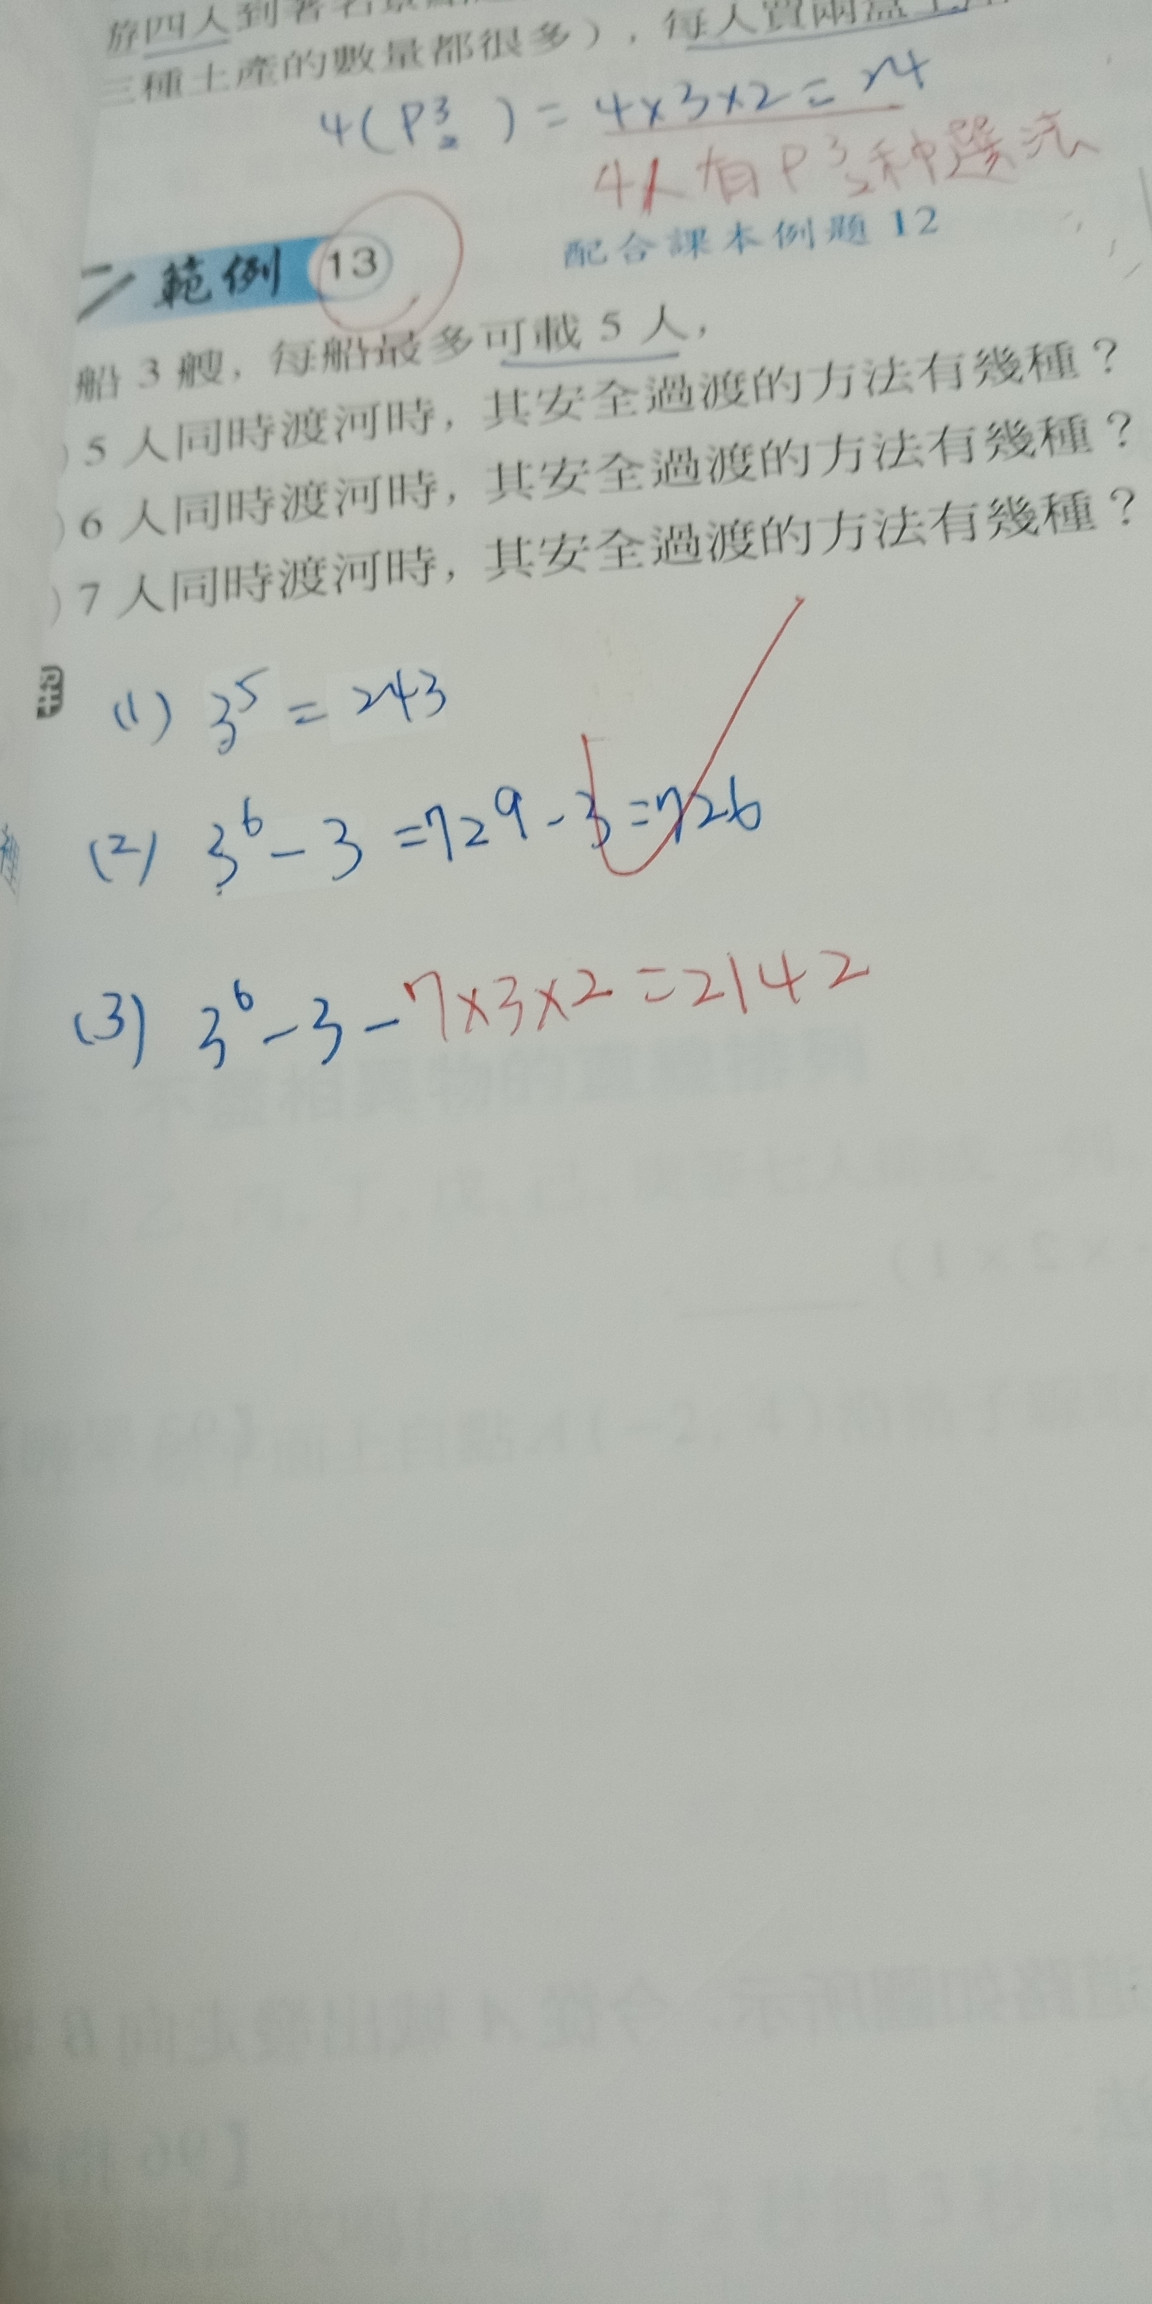 游四人到著名景
三種土產的數量都很多），每人買兩盒土
4(P³₂) = 4×3×2=24
4人有P³₂种選法
範例 13
配合課本例題 12
船 3 艘，每船最多可載 5 人，
)5 人同時渡河時，其安全過渡的方法有幾種？
)6 人同時渡河時，其安全過渡的方法有幾種？
)7 人同時渡河時，其安全過渡的方法有幾種？
(1) 3⁵ = 243
(2) 3⁶-3 =729-3=726
(3) 3⁶-3-7×3×2=2142